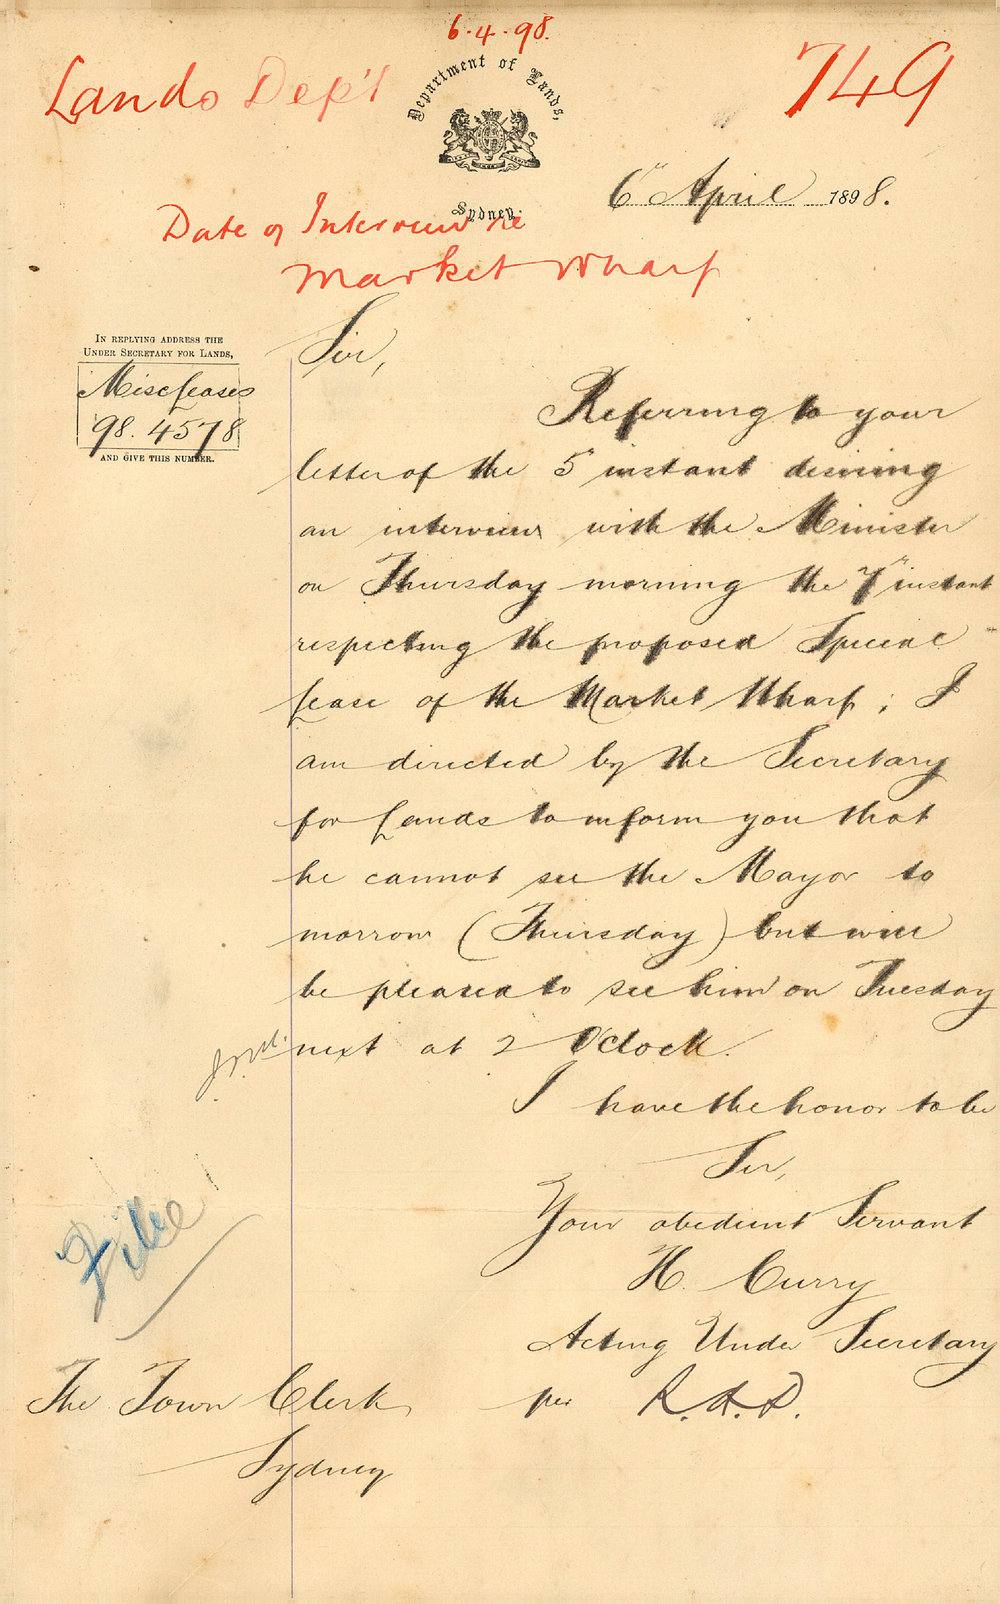 6.4.98.
Lands Dep't
749
Department of Lands,
Sydney.
6th April 1898.
Date of Interview re
Market Wharf
IN REPLYING ADDRESS THE
UNDER SECRETARY FOR LANDS,
Misc Leases
98.4578
AND GIVE THIS NUMBER.
Sir,
Referring to your
letter of the 5th instant desiring
an interview with the Minister
on Thursday morning the 7th instant
respecting the proposed Special
Lease of the Market Wharf; I
am directed by the Secretary
for Lands to inform you that
he cannot see the Mayor to
morrow (Thursday) but will
be pleased to see him on Tuesday
next at 2 O'Clock.
I have the honor to be
Sir,
Your obedient Servant
H. Curry
Acting Under Secretary
per R.A.D.
File
The Town Clerk
Sydney